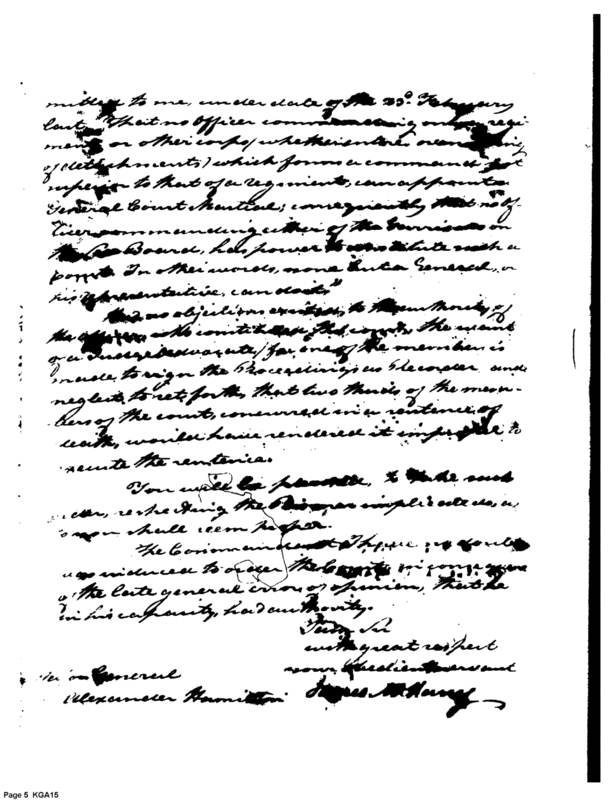 mitted to me, under date of the 23d. February
last "That no Officer commanding only a regi
ment or other corps (whether entire or
of detachments) which forms a command not
superior to that of a regiment, can appoint a
General Court Martial; consequently that no Of-
ficer commanding either of the Garrisons on
the Sea Board, has power to constitute such a
court. In other words, none but a General, or
his representative, can do it."
Had no objections existed, to the authority of
the officer who constituted the court, the want
of a Judge Advocate (for one of the members is
made to sign the Proceedings as Recorder and
neglect to set forth, that two thirds of the mem-
bers of the court, concurred in a sentence of
death, would have rendered it improper to
execute the sentence.
You will be pleased, to take such
order, respecting the Prisoner implicated, as
you shall deem proper.
The Commandant I have no doubt
was induced to order the Court, in consequence
of the late general error of opinion, that he
in his capacity, had authority.
I am Sir
with great respect
your obedient servant
James McHenry
General
Alexander Hamilton
Page 5 KGA15